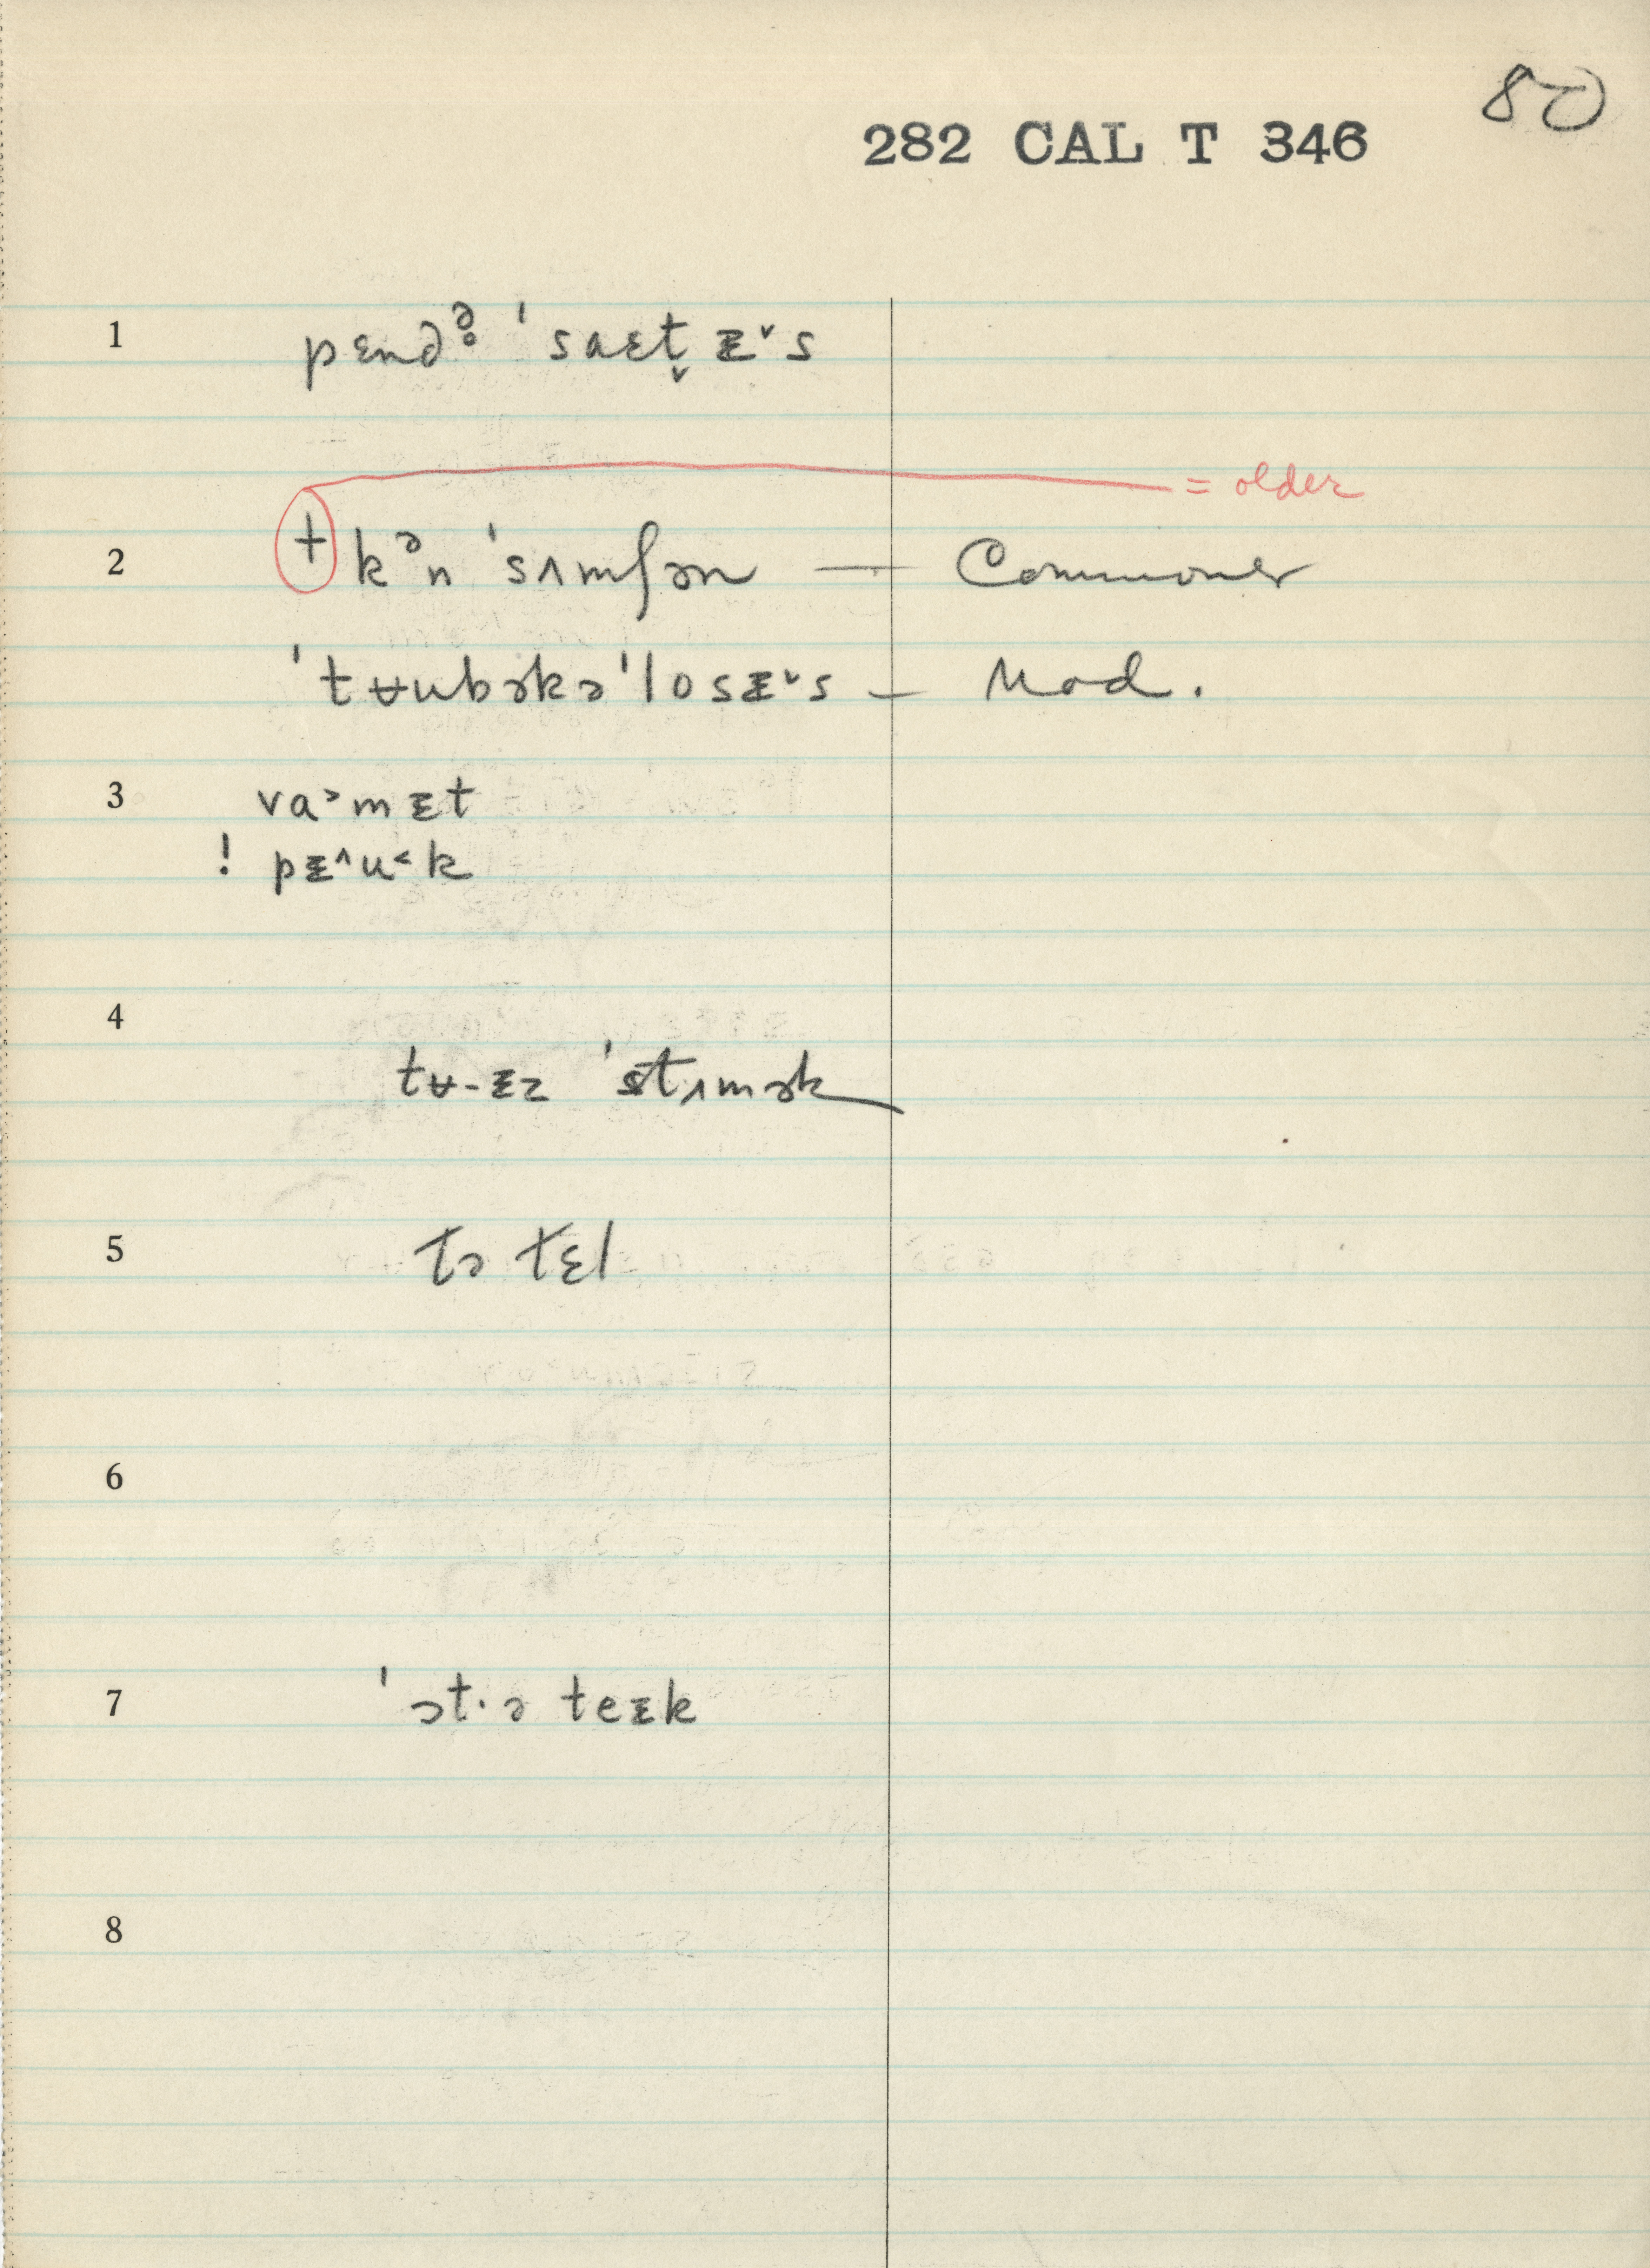 80
282 CAL T 346
1 pɛndᵊ̥ ˈsaɛt̬ᵻ̌s
= older
2 + kᵊn ˈsʌmʃən — Commoner
ˈtʉubəkəˈlosᵻ̌s — Mod.
3 va˃mᵻt
! pᵻ^u˂k
4 tʉ-ᵻz ˈstʌmək
5 tə tɛl
6
7 ˈɔt·ə teᵻk
8